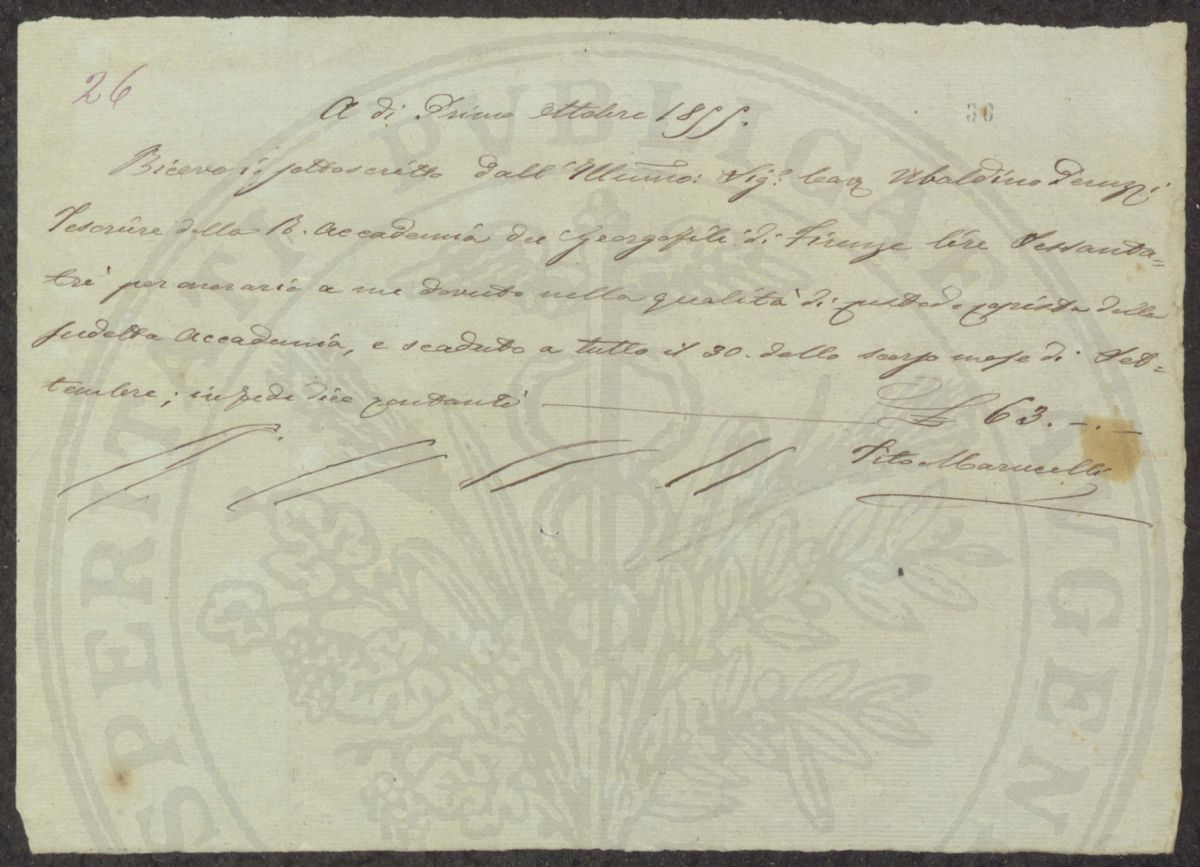 26
A dì Primo Ottobre 1855.
Ricevo io sottoscritto dall'Illuмmo: Sigr. Cav Ubaldino Peruzzi
Tesorière della R. Accademia dei Georgofili di Firenze lire Sessanta=
trè per onorario a me dovuto nella qualità di custode copista della
sudetta Accademia, e scaduto a tutto il 30. dello scorso mese di Set=
tembre; in fede dico contanti £ 63. -.-
Tito Marucelli
PVBLICAE
PROSPERITATI
AVGEN